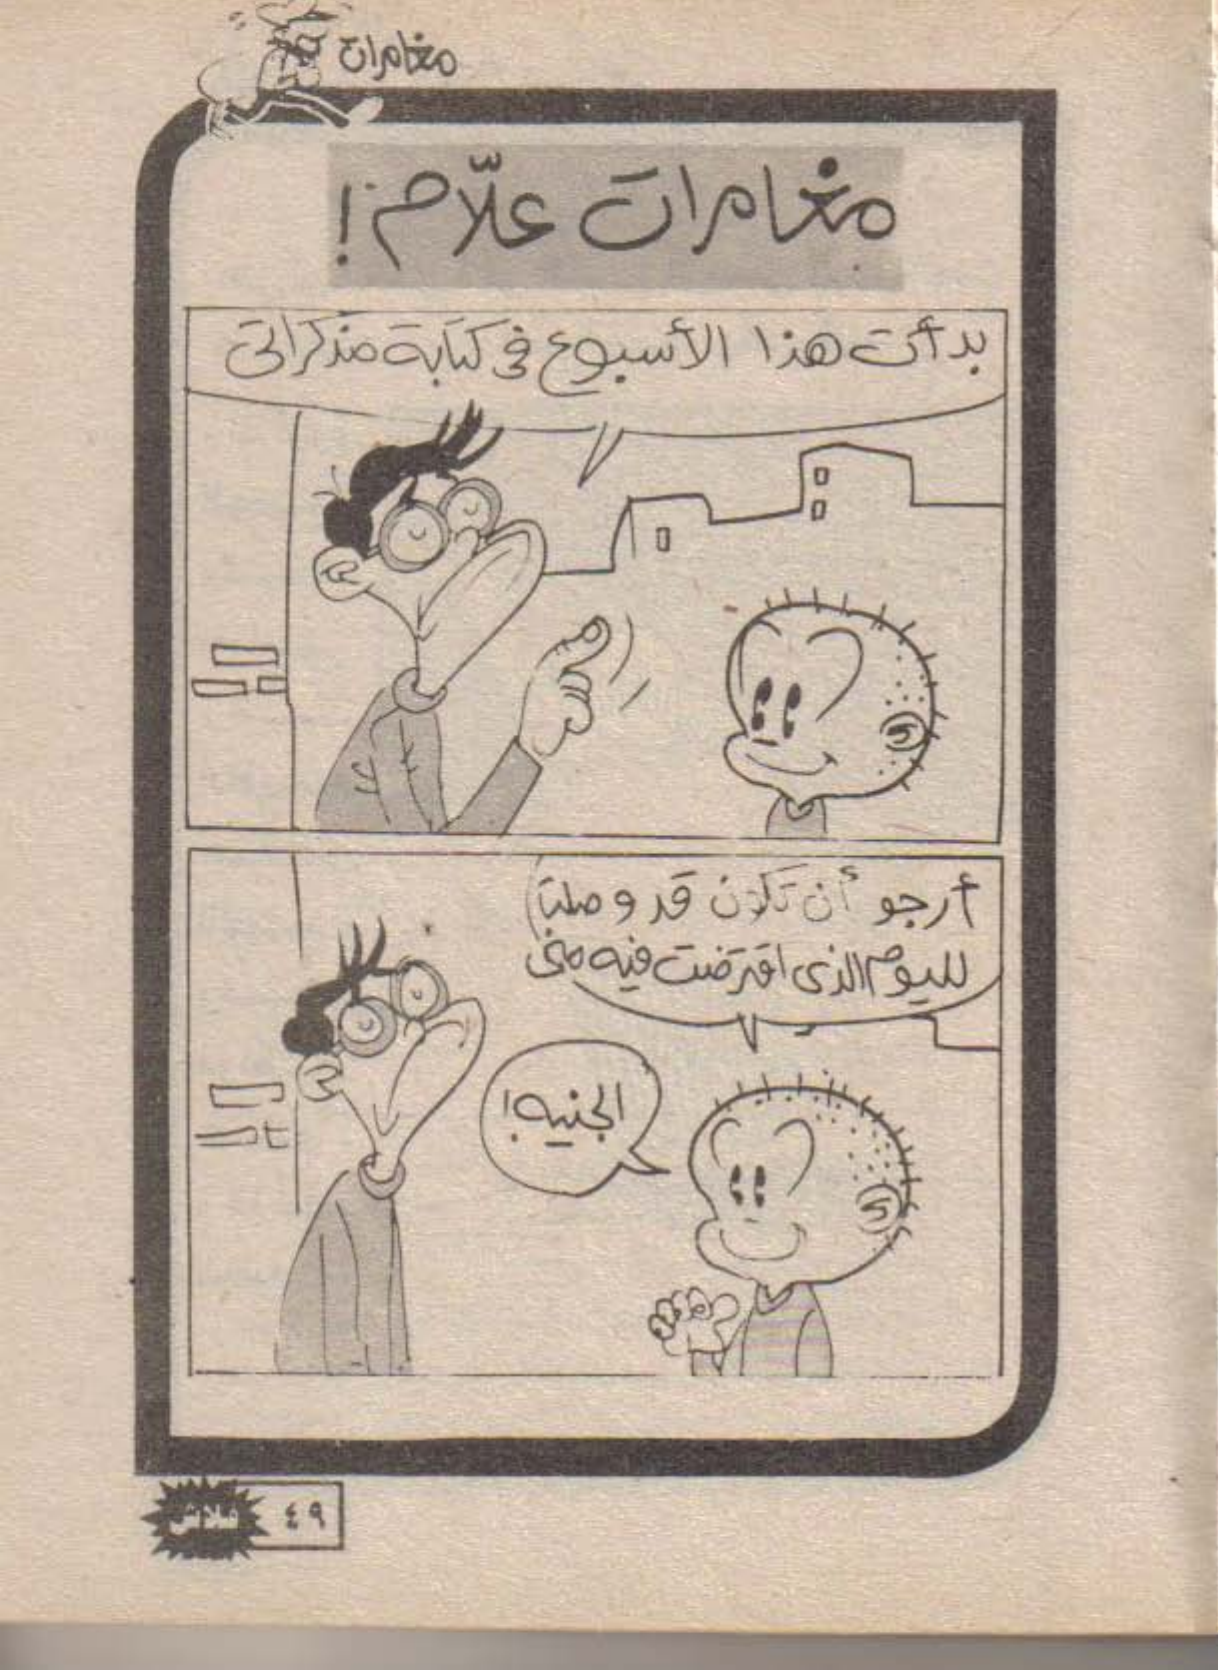 مغامرات
مغامرات علّام!
بدأت هذا الأسبوع في كتابة مذكراتى
أرجو أن تكون قد وصلت
لليوم الذى اقترضت فيه منى
الجنيه!
فلاش ٤٩